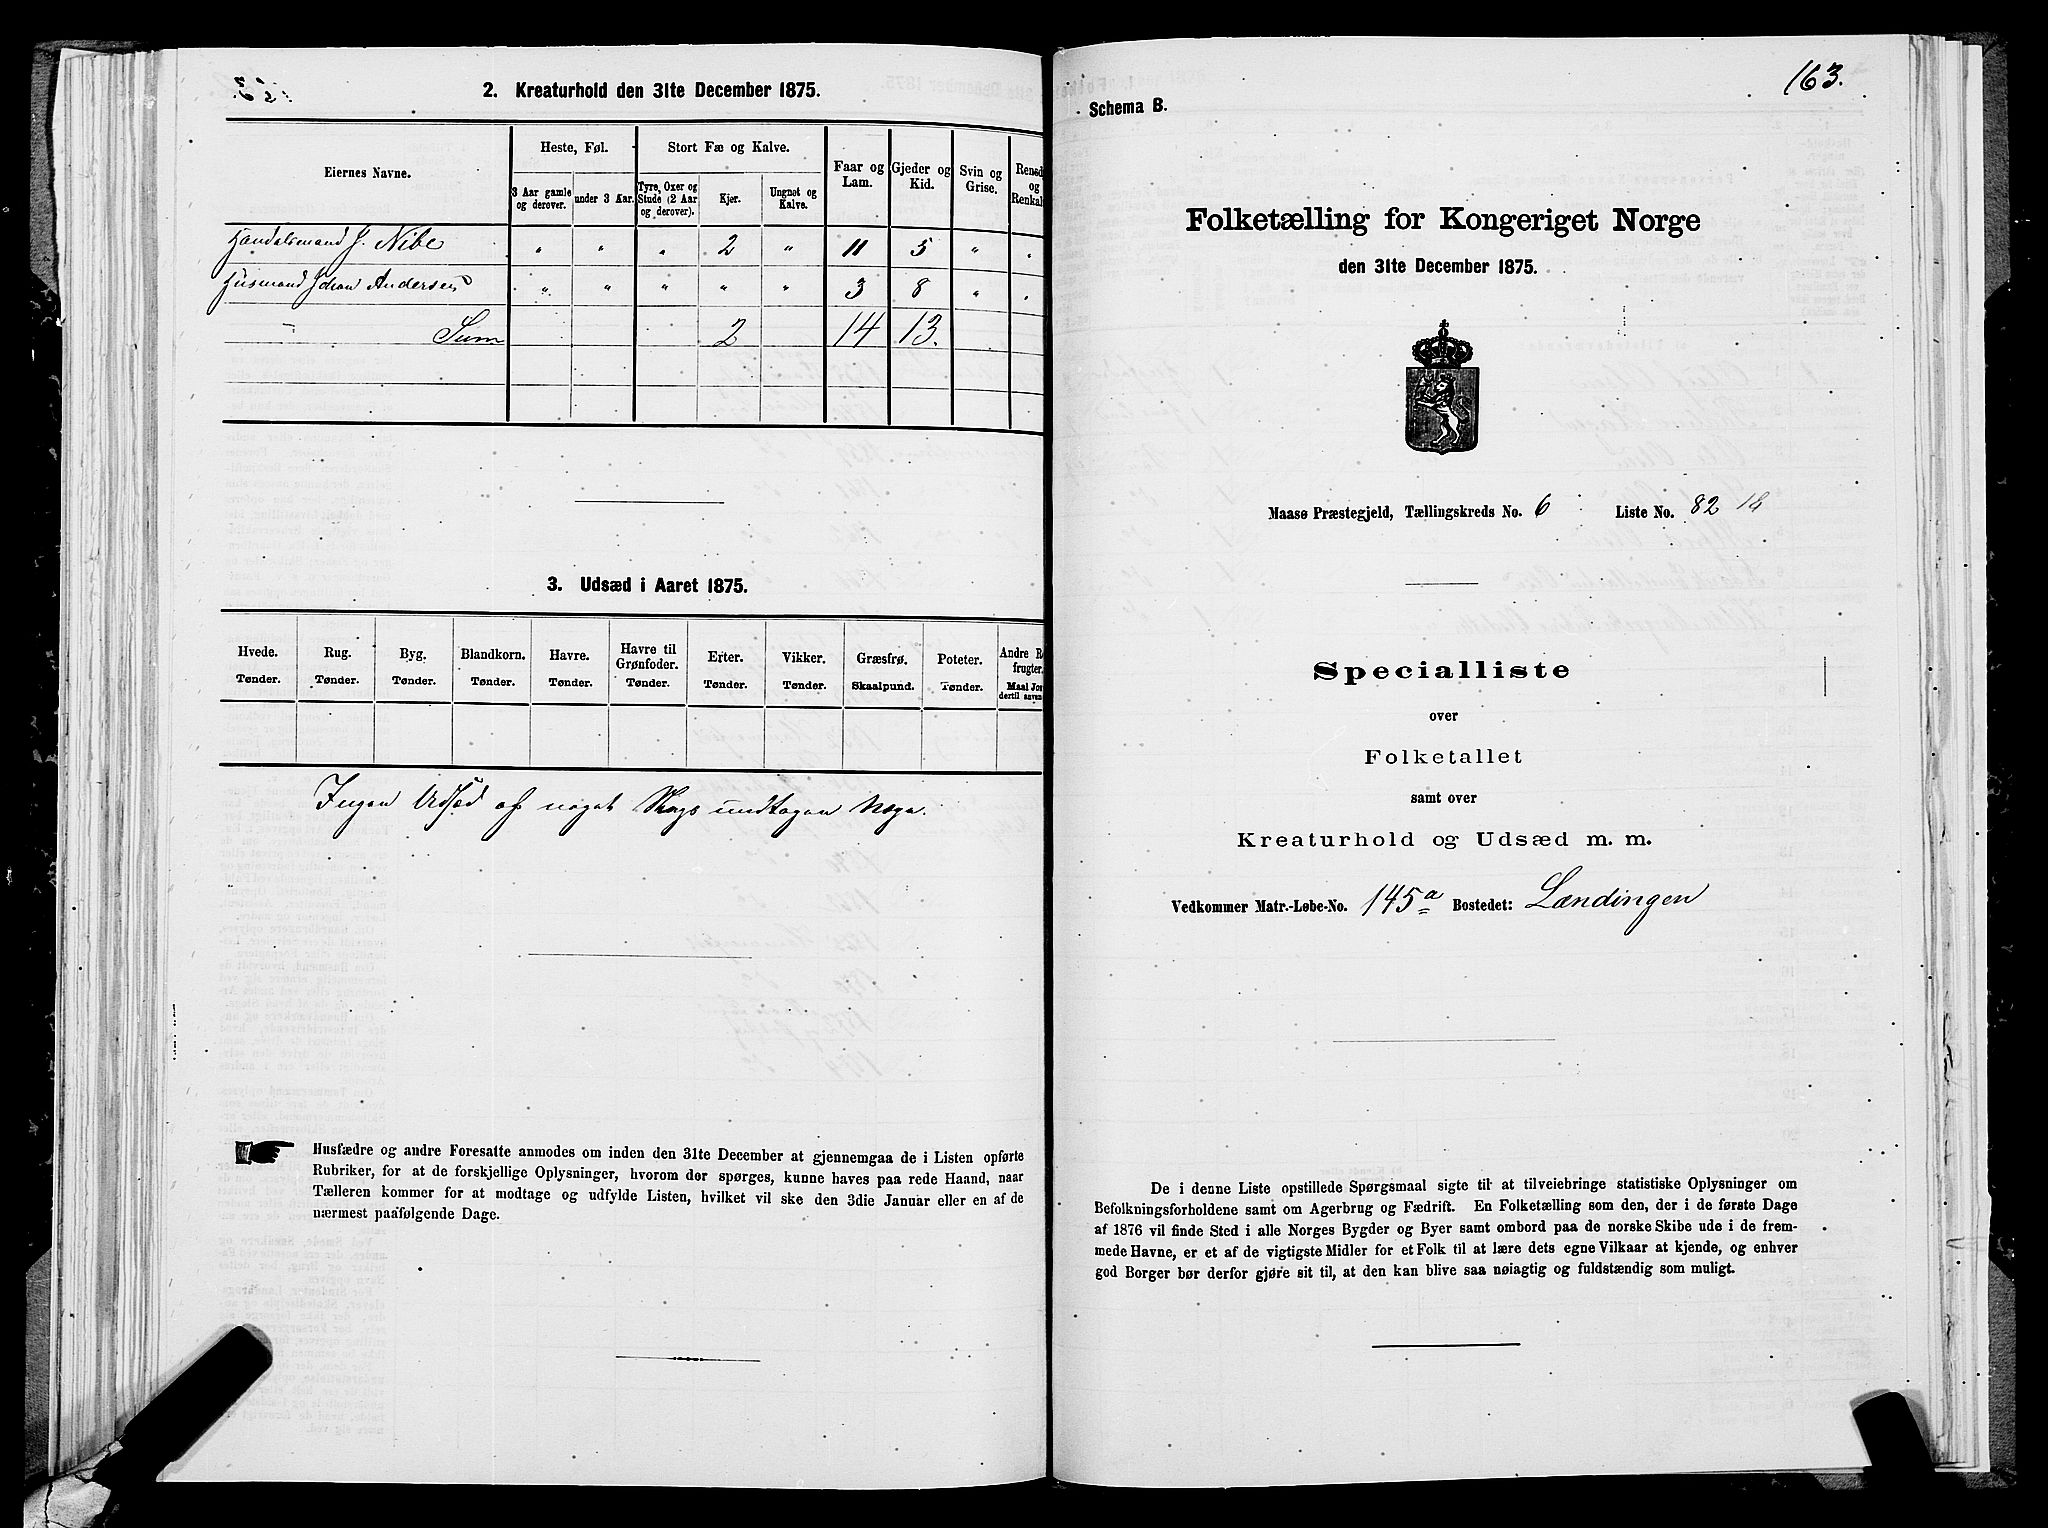 2. Kreaturhold den 31te December 1875.
Eiernes Navne.
Heste, Føl.
Stort Fæ og Kalve.
Faar og Lam.
Gjeder og Kid.
Svin og Grise.
Rensd
og
Renkal
3 Aar gamle og derover.
under 3 Aar.
Tyre, Oxer og Stude (2 Aar og derover).
Kjør.
Ungnøt og Kalve.
Handelsmand J. Nibe " " " 2 " 11 5 " "
Husmand Johan Andersen " " " " " 3 8 " "
Sum 2 14 13.
3. Udsæd i Aaret 1875.
Hvede. Rug. Byg. Blandkorn. Havre. Havre til Grønfoder. Erter. Vikker. Græsfrø. Poteter. Andre R
frugter.
Tønder. Tønder. Tønder. Tønder. Tønder. Tønder. Tønder. Tønder. Skaalpund. Tønder. Maal Jor
dertil anven
Ingen Udsæd af noget Slags undtagen Næpe.
Husfædre og andre Foresatte anmodes om inden den 31te December at gjennemgaa de i Listen opførte
Rubriker, for at de forskjellige Oplysninger, hvorom der spørges, kunne haves paa rede Haand, naar
Tælleren kommer for at modtage og udfylde Listen, hvilket vil ske den 3die Januar eller en af de
nærmest paafølgende Dage.
163.
Schema B.
Folketælling for Kongeriget Norge
den 31te December 1875.
Maasø Præstegjeld, Tællingskreds No. 6 Liste No. 82 18
Specialliste
over
Folketallet
samt over
Kreaturhold og Udsæd m. m.
Vedkommer Matr.-Løbe-No. 145a Bostedet: Lændingen
De i denne Liste opstillede Spørgsmaal sigte til at tilveiebringe statistiske Oplysninger om
Befolkningsforholdene samt om Agerbrug og Fædrift. En Folketælling som den, der i de første Dage
af 1876 vil finde Sted i alle Norges Bygder og Byer samt ombord paa de norske Skibe ude i de frem-
mede Havne, er et af de vigtigste Midler for et Folk til at lære dets egne Vilkaar at kjende, og enhver
god Borger bør derfor gjøre sit til, at den kan blive saa nøiagtig og fuldstændig som muligt.